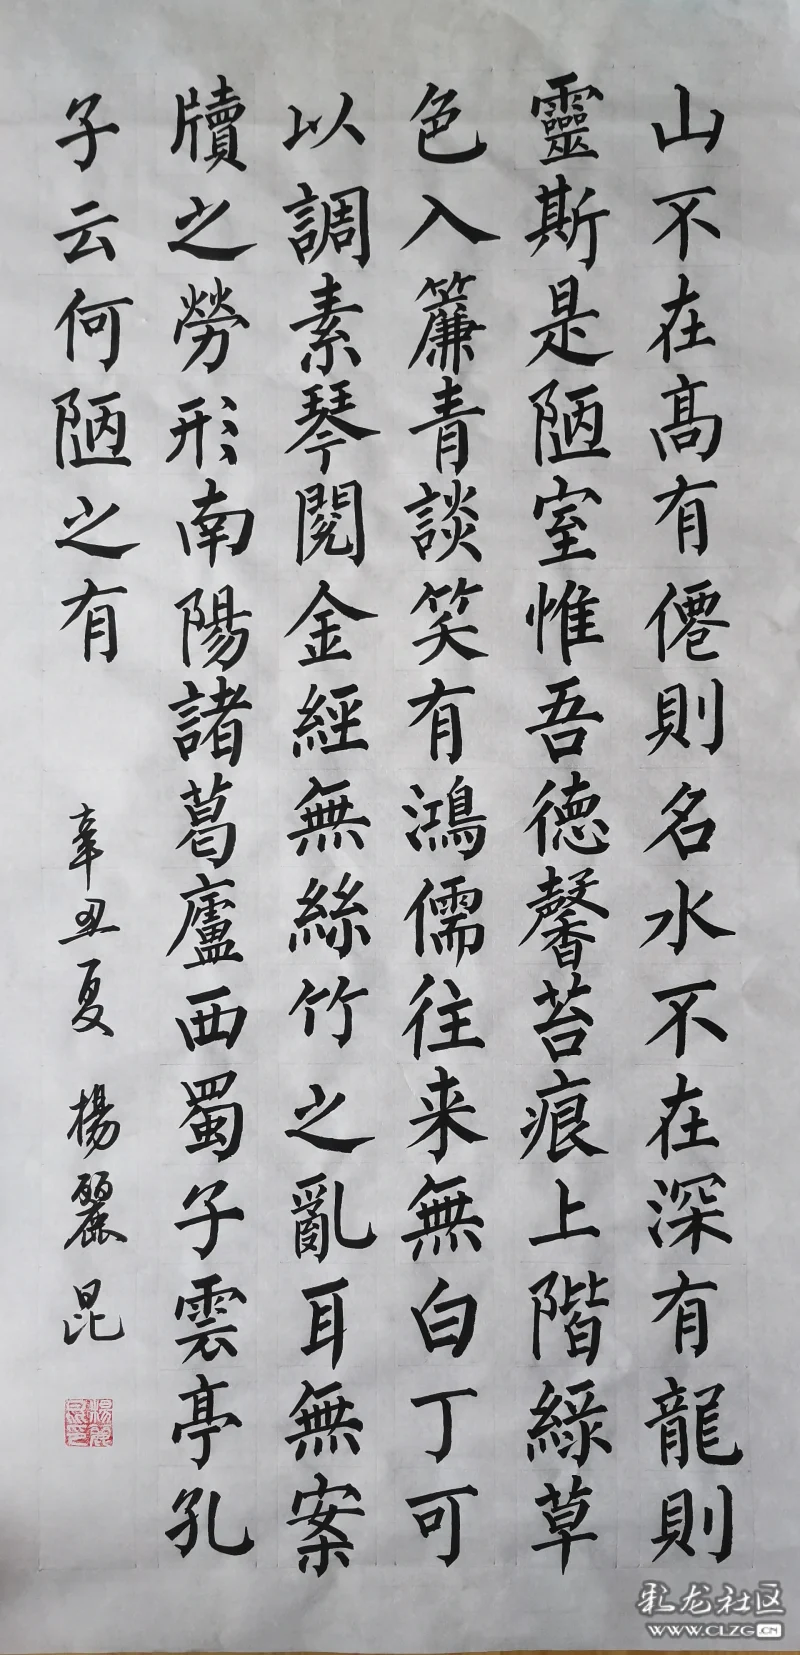 山不在高有僊則名水不在深有龍則
靈斯是陋室惟吾德馨苔痕上階綠草
色入簾青談笑有鴻儒往来無白丁可
以調素琴閱金經無絲竹之亂耳無案
牘之勞形南陽諸葛廬西蜀子雲亭孔
子云何陋之有
辛丑夏 楊麗昆
彩龙社区
WWW.CLZG.CN